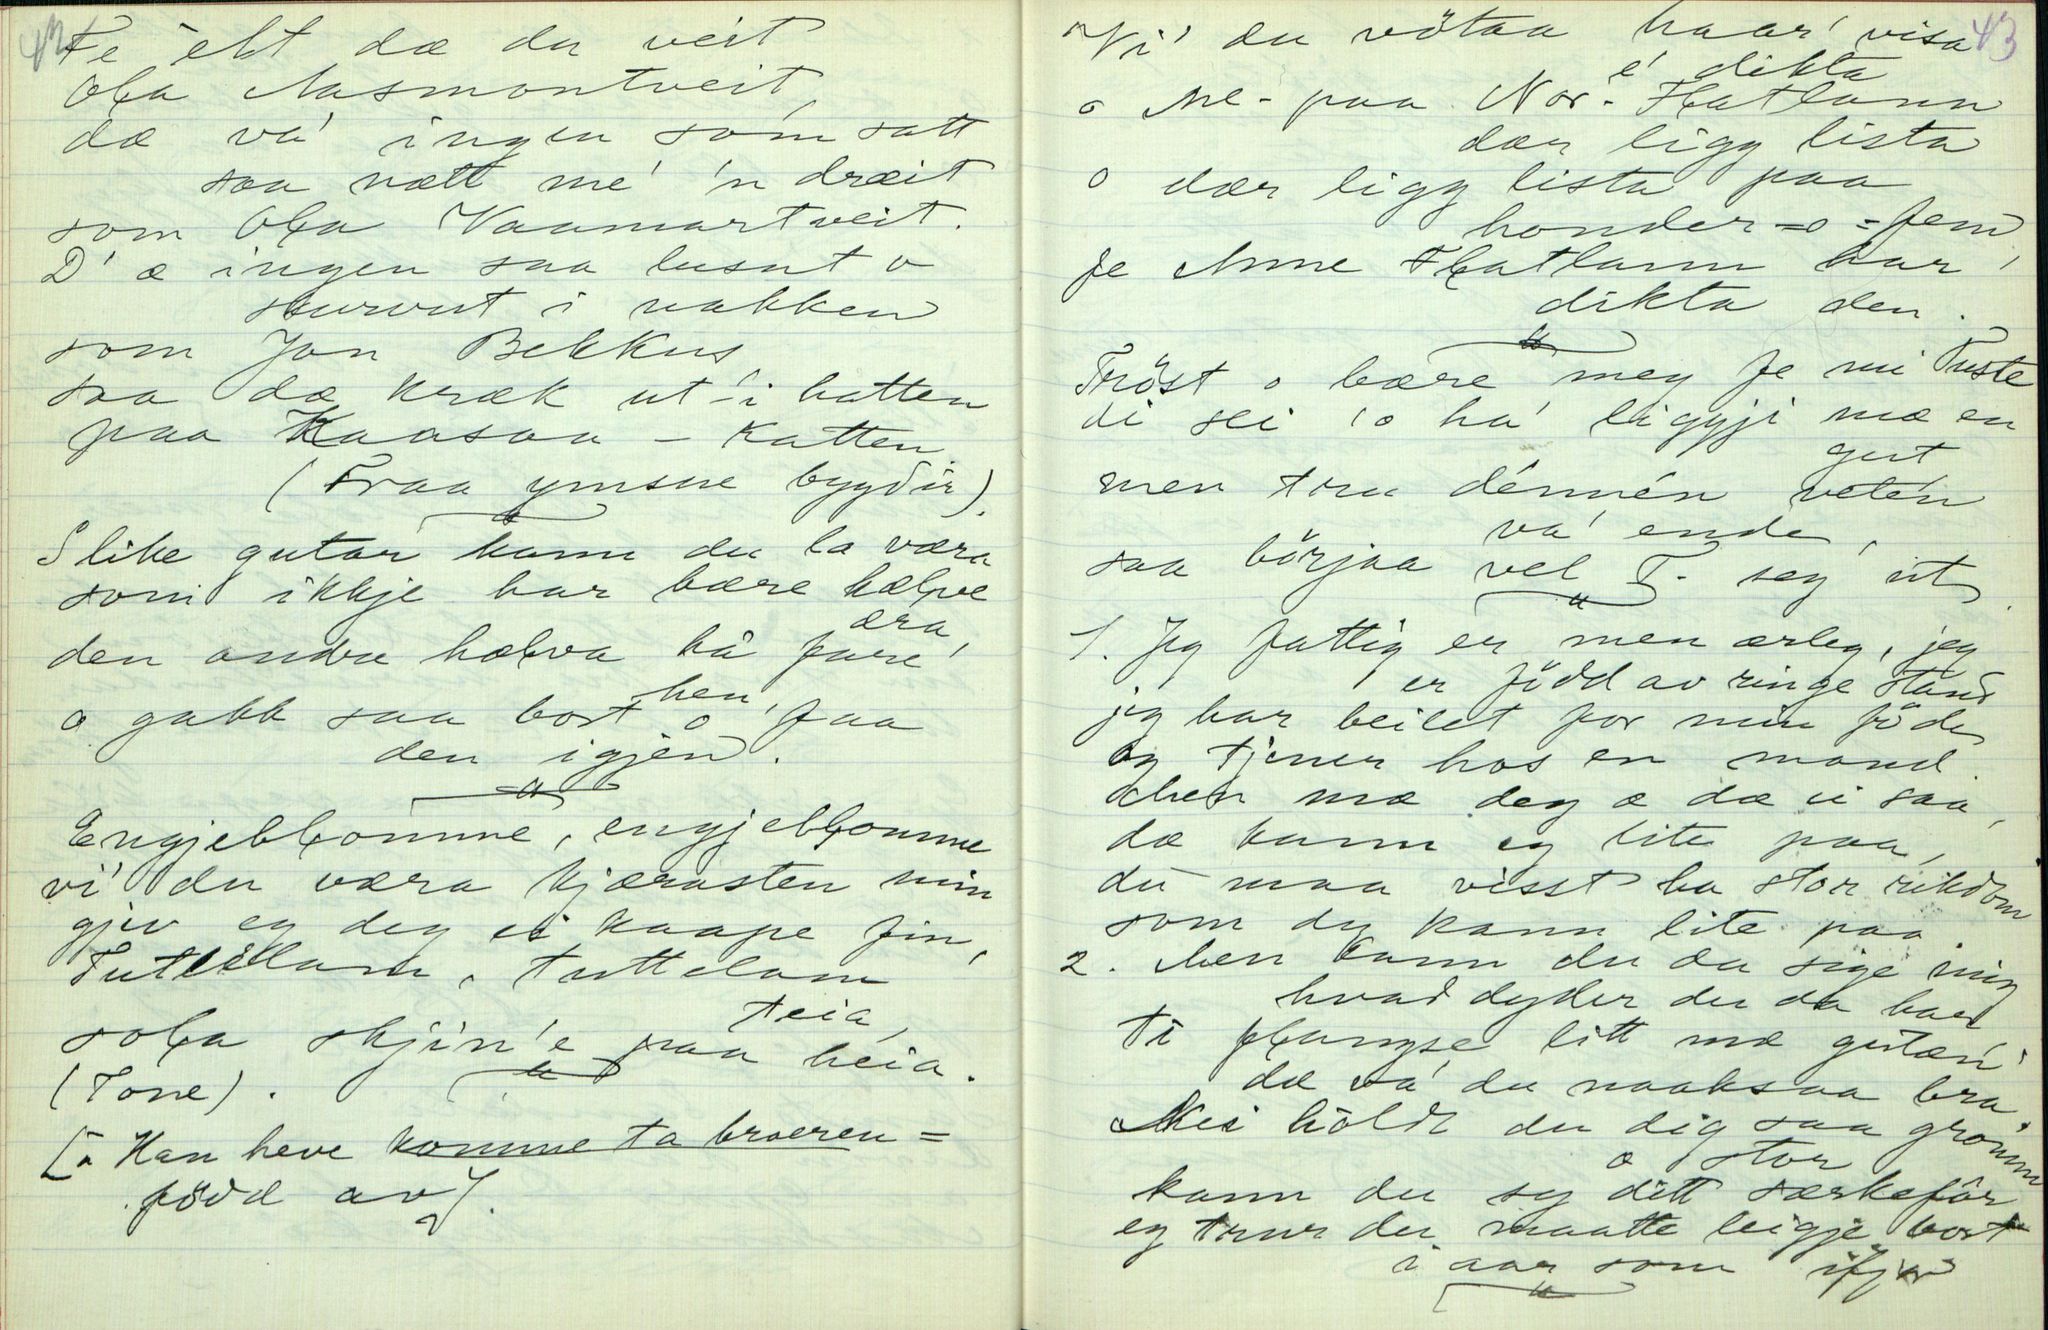 42
Fe ølt dæ du veit
Ola Aasmontveit
dæ va' ingen som satt
saa nætt me' 'n dræit
som Ola Vaamartveit.
D' æ ingen saa lusut o
skurvut i nakken
som Jon Bekkus
saa dæ kræk ut-i hatten
paa Kaasaa-Katten
(Fraa ymsne bygdir).
Slike gutar kann du la væra
som ikkje har bære hælve
æra,
den andre hælva hå fare'
hen,
o gakk saa bort o faa
den igjen.
Engjeblomme, engjeblomme
vi' du væra kjærasten min
gjev eg deg ei kaape fin,
Tuttelam, tuttelam
teia,
sola skjin'e paa heia.
(Tone).
[Han heve komme ta broeren =
född av].
43
Vi' du vötaa haar' visa
e' dikta
o Me- paa Nor-Hatlann
dær ligg lista
o dær ligg lista paa
honder=o=fem
fe Anne Hatlann har'
dikta den.
Tröst o bære meg fe mi Tuste
di sei 'o ha' liggji mæ en
gut
men tru dénnén vetén
va' ende,
saa börjaa vel T. seg ut
1. Jeg fattig er men ærleg, jeg
er född av ringe stand
jeg har beilet for min föde
og tjener hos en mand.
Men mæ deg æ dæ ei saa,
dæ kann eg lite paa,
du maa visst ha stor rikdom
som du kann lite paa
2. Men kann du da sige mig
hvad dyder du da har
ti flangse litt mæ gutæn'
dæ va' du naaksaa bra.
Nei höldt du dig saa gromm
o stor
kann du sy ditt særkefor
eg trur du maatte leigje bort
i aar som ifjor